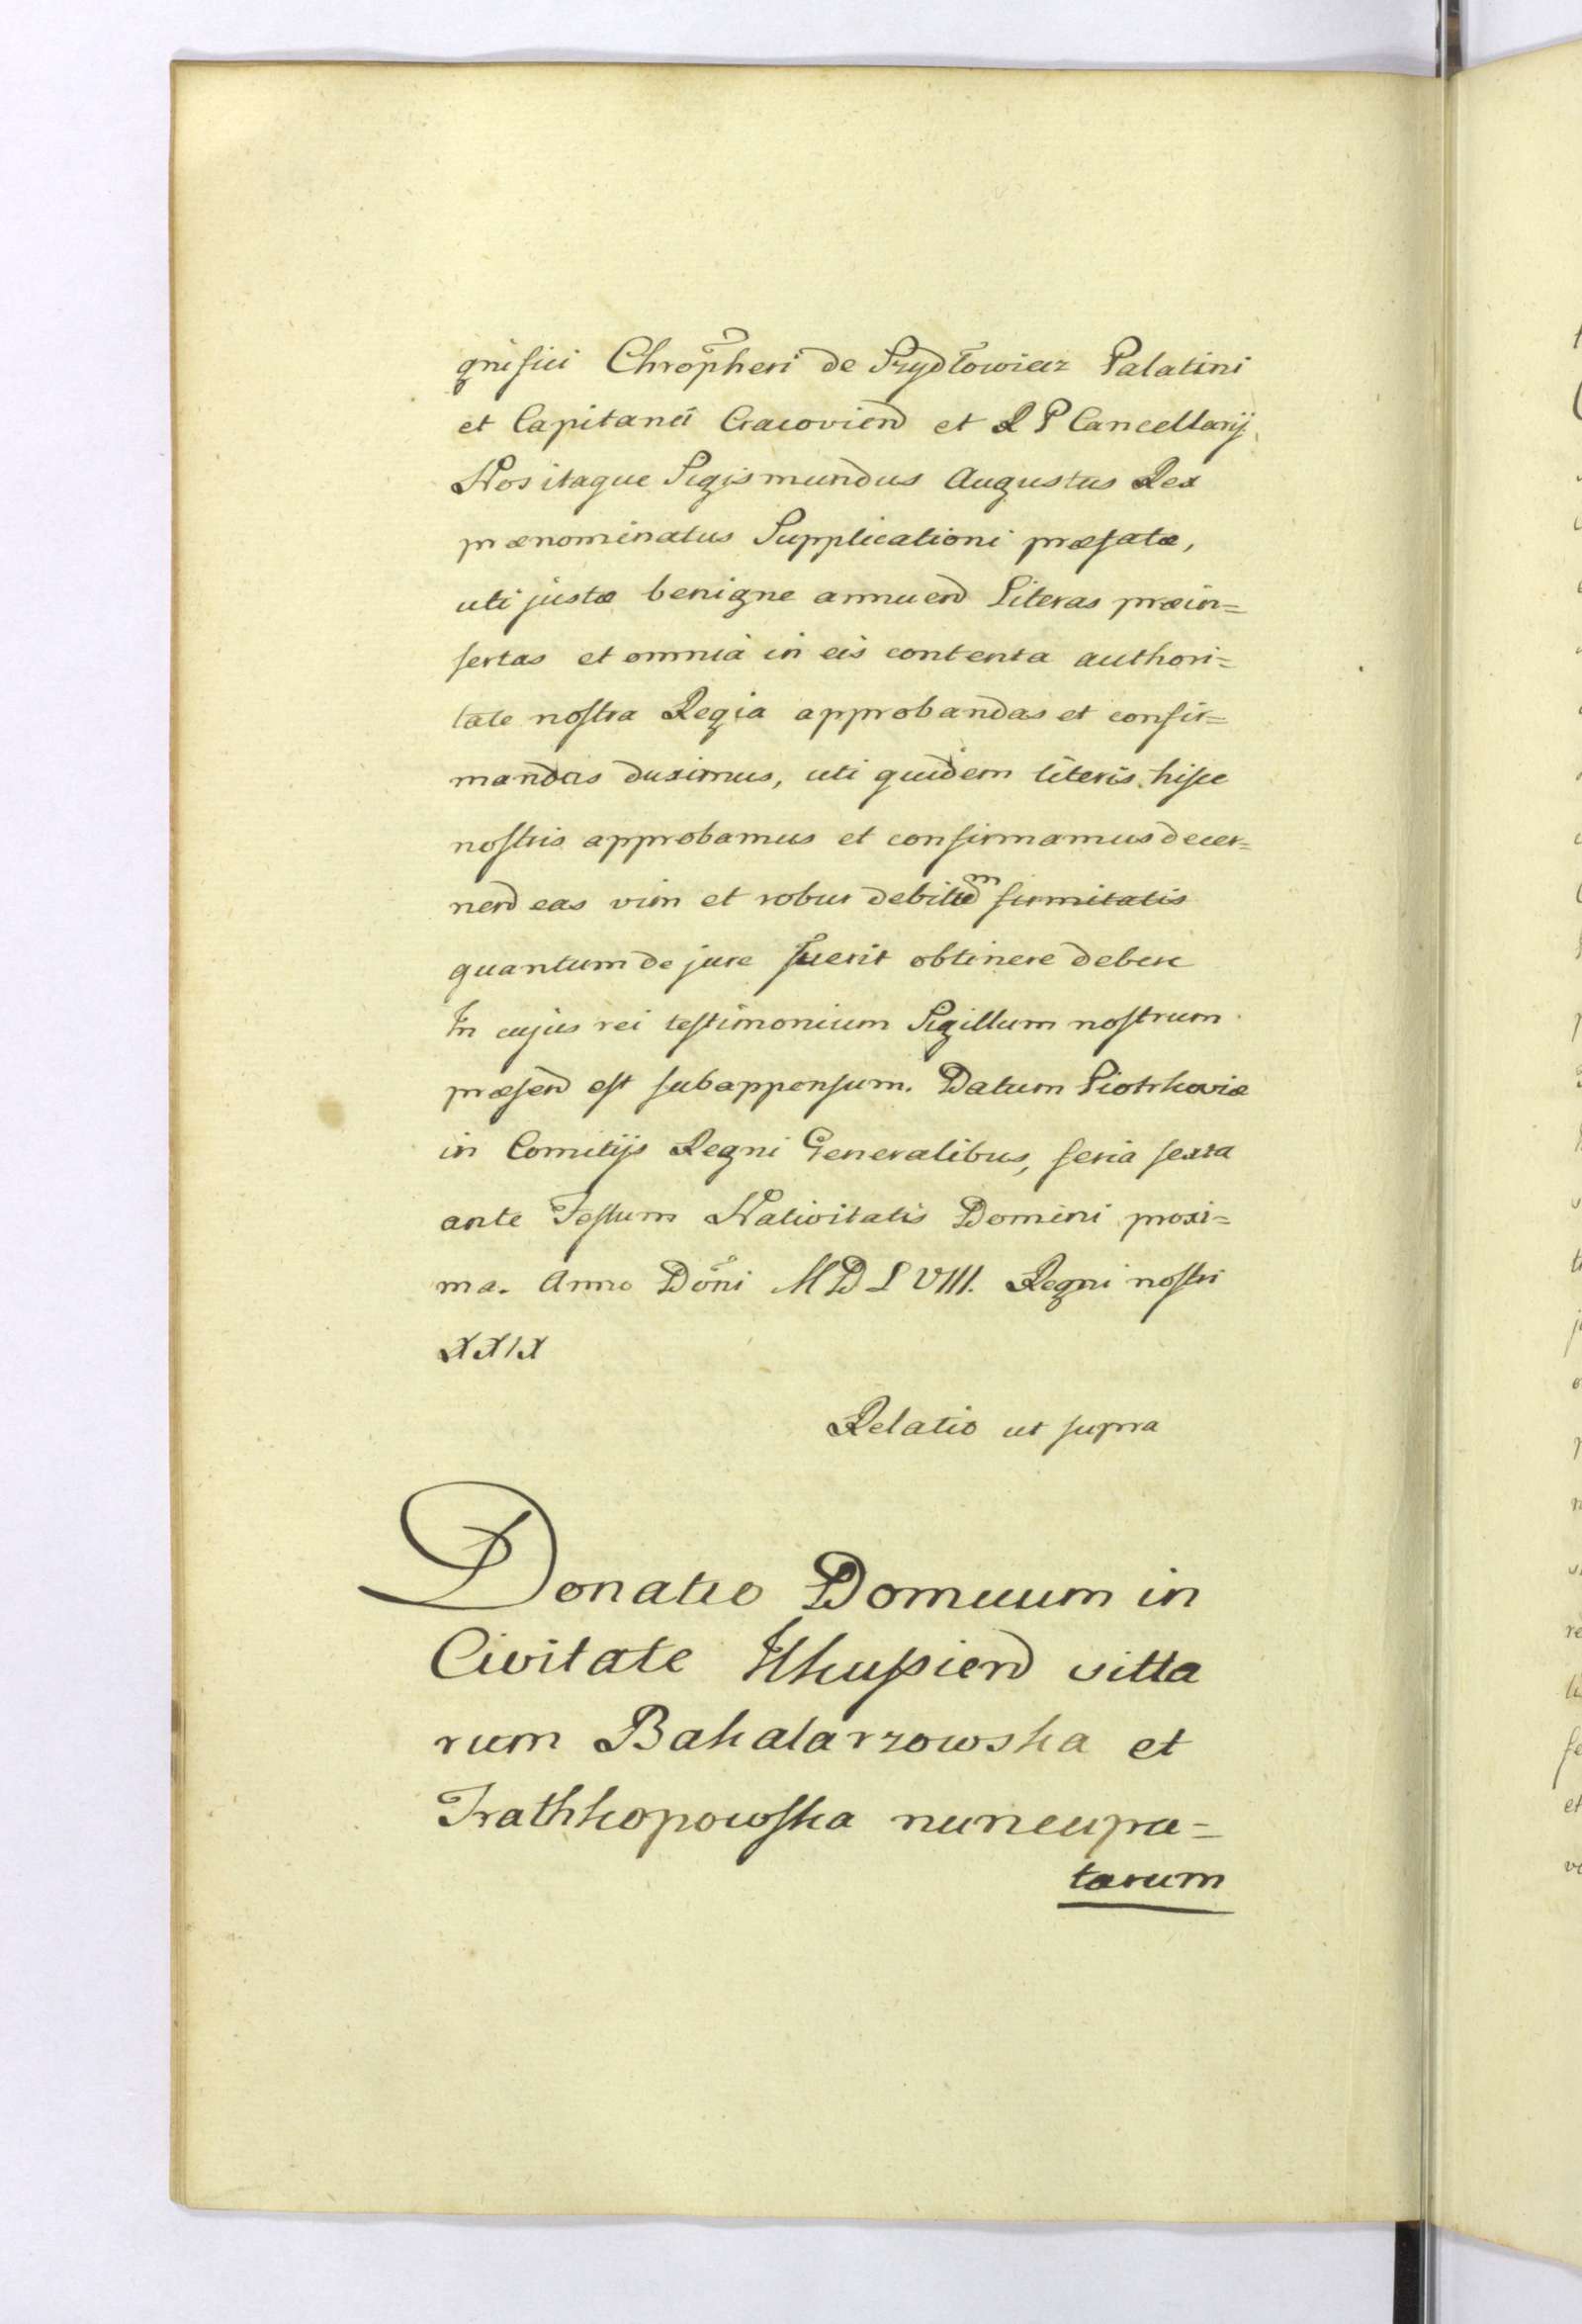 gnifici Chropheri de Szydłowiecz Palatini
et Capitanei Cracovien et R P Cancellarij
Nos itaque Sigismundus Augustus Rex
prænominatus Supplicationi præfatæ,
uti justæ benigne annuen Literas præin=
sertas et omnia in eis contenta authori=
tate nostra Regia approbandas et confir=
mandas duximus, uti quidem literis hisce
nostris approbamus et confirmamus decer=
nen eas vim et robur debitum firmitatis
quantum de jure fuerit obtinere debere
In cujus rei testimonium Sigillum nostrum
præsen est subappensum. Datum Piotrkoviæ
in Comitijs Regni Generalibus, feria sexta
ante Festum Nativitatis Domini proxi=
ma. Anno Doni M D L VIII. Regni nostri
XXIX
Relatio ut supra
Donatio Domuum in
Civitate Ilkusien vitta
rum Bakalarzowska et
Trathkopowska nuncupa=
tarum